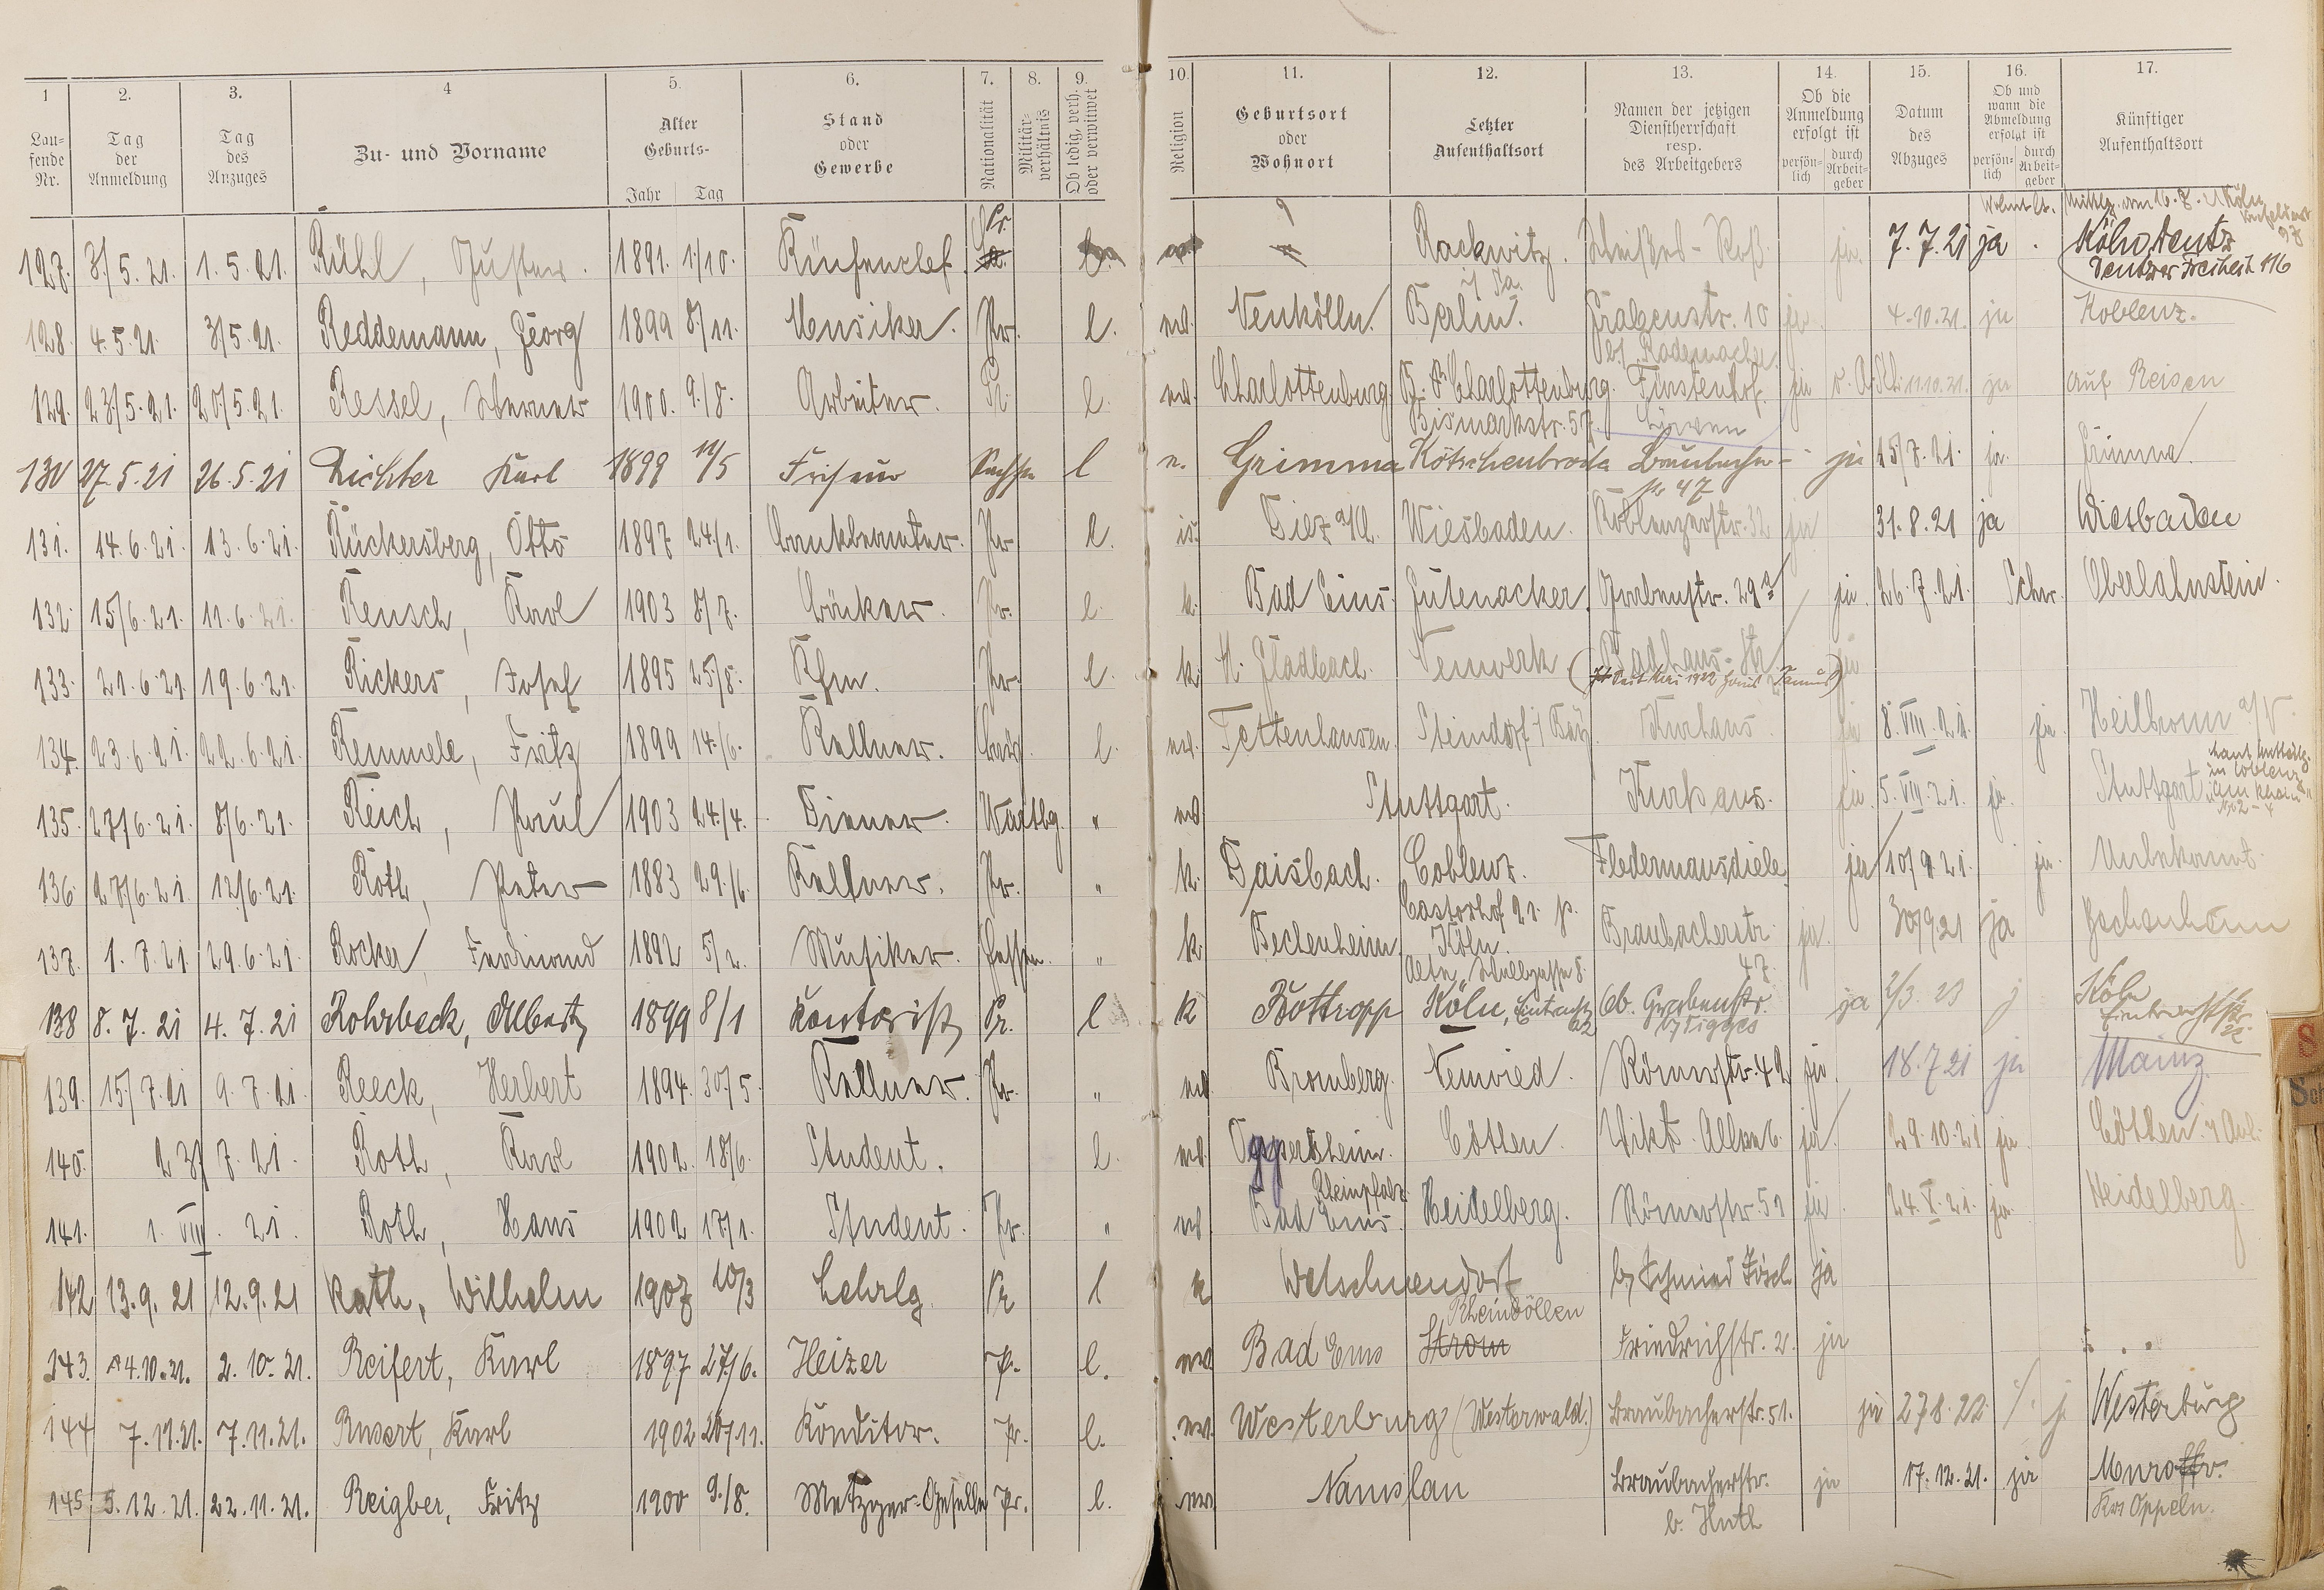 1 2. 3. 4 5. 6. 7. 8. 9. 10. 11. 12. 13. 14. 15. 16. 17.
Lau-fende Nr. Tag der Anmeldung Tag des Anzuges Zu- und Vorname Alter Geburts- Jahr Tag Stand oder Gewerbe Nationalität Militär-verhältnis Ob ledig, verh. oder verwitwet Religion Geburtsort oder Wohnort Letzter Aufenthaltsort Namen der jetzigen Dienstherrschaft resp. des Arbeitgebers Ob die Anmeldung erfolgt ist persön-lich durch Arbeit-geber Datum des Abzuges Ob und wann die Abmeldung erfolgt ist persön-lich durch Arbeit-geber Künftiger Aufenthaltsort
127. 3/5.21. 1.5.21. Rühl, Gustav. 1891. 1/10. Küchenchef. Pr. Rackwitz i/Sa. ja. 7.7.21 ja Köln Deutz Deutzer Freiheit 116
128. 4.5.21. 3/5.21. Reddemann, Georg 1899 8/11. Musiker. Pr. l. ev. Neukölln. Berlin. Grabenstr. 10 b/ Rademacher ja 4.10.21. ja Koblenz.
129. 23/5.21. 20/5.21. Ressel, Werner 1900. 9./8. Arbeiter. Pr. l. ev. Charlottenburg. Charlottenburg. Bismarkstr. 57. Fürstenhof. ja 11.10.21. ja auf Reisen
130 27.5.21 26.5.21 Richter Karl 1899 11/5 Friseur Sachsen l e. Grimma Kötschenbroda Braubacher-str 47 ja 15/7.21. ja. Grimma.
131. 14.6.21. 13.6.21. Rückersberg, Otto 1897 24/1. Bankbeamter. Pr. l. is. Diez a/L. Wiesbaden. Koblenzerstr. 32 ja 31.8.21 ja Wiesbaden
132. 15/6.21. 11.6.21. Reusch, Karl 1903 8/7. Bäcker. Pr. l. k. Bad Ems. Gutenacker. Grabenstr. 29a ja. 26.7.21. Schr. Oberlahnstein.
133. 21.6.21. 19.6.21. Rickers, Josef 1895 25/8. Kfm. Pr. l. k. M. Gladbach. Neuwerk Badhaus-Str. ja
134. 23.6.21. 22.6.21. Remmele, Fritz 1899 14./6. Kellner. l. ev. Tettenhausen. Steindorf Kurhaus ja 8.VIII.21. ja. Heilbronn a/N.
135. 27/6.21. 8/6.21. Reich, Paul 1903 24./4. Diener. Württbg. " ev. Stuttgart. Kurhaus. ja. 5.VIII.21. ja. Stuttgart
136. 27/6.21. 12/6.21. Roth, Peter 1883 29./6. Kellner. Pr. " k. Daisbach. Coblenz. Castorhof 21. p. Fledermausdiele. ja 10/9 21. ja. Unbekannt.
137. 1.7.21. 29.6.21. Rocker, Ferdinand 1892 5/2. Musiker. Hessen. " k. Bechenheim. Köln. Alte Wallgasse 8. Braubacherstr. 47. ja. 30/9 21 ja
138 8.7.21 4.7.21 Rohrbeck, Albert 1899 8/1 Kontorist Pr. l k Bottropp Köln, Eintracht 22 Ob. Grabenstr. b/ Tigges ja 2/3.23 j Köln Eintrachtstr. 22
139. 15/7.21 9.7.21 Reeck, Herbert 1894. 30./5. Kellner. Pr. " ev. Bromberg. Neuwied. Römerstr. 42 ja. 18.7.21 ja Mainz.
140. 23/7.21. Roth, Karl 1902. 18/6. Student. l. ev. Oggersheim. Rheinpfalz Cöthen. Vikt. Allee 6. ja. 29.10.21 ja Cöthen i/ Anh.
141. 1.VIII.21. Roth, Hans 1902 17/1. Student. Pr. " ev. Bad Ems. Heidelberg. Römerstr. 52 ja. 24.X.21. ja. Heidelberg.
142 13.9.21 12.9.21 Kath, Wilhelm 1907 10/3 Lehrlg. Pr l k Welschneudorf b/ Schmied ja
143. 4.10.21. 2.10.21. Reifert, Karl 1897 27./6. Heizer Pr. l. ev. Bad Ems Strom Rheinböllen Friedrichstr. 2. ja
144 7.11.21. 7.11.21. Karl 1902 20/11. Konditor. Pr. l. ev. Westerburg (Westerwald.) Braubacherstr. 51. ja 27.8.22. j. Westerburg
145 5.12.21. 22.11.21. Reigber, Fritz 1900 9./8. Metzger-Geselle Pr. l. ev. Namslau Braubacherstr. b. Huth ja 17.12.21. ja Krs Oppeln.